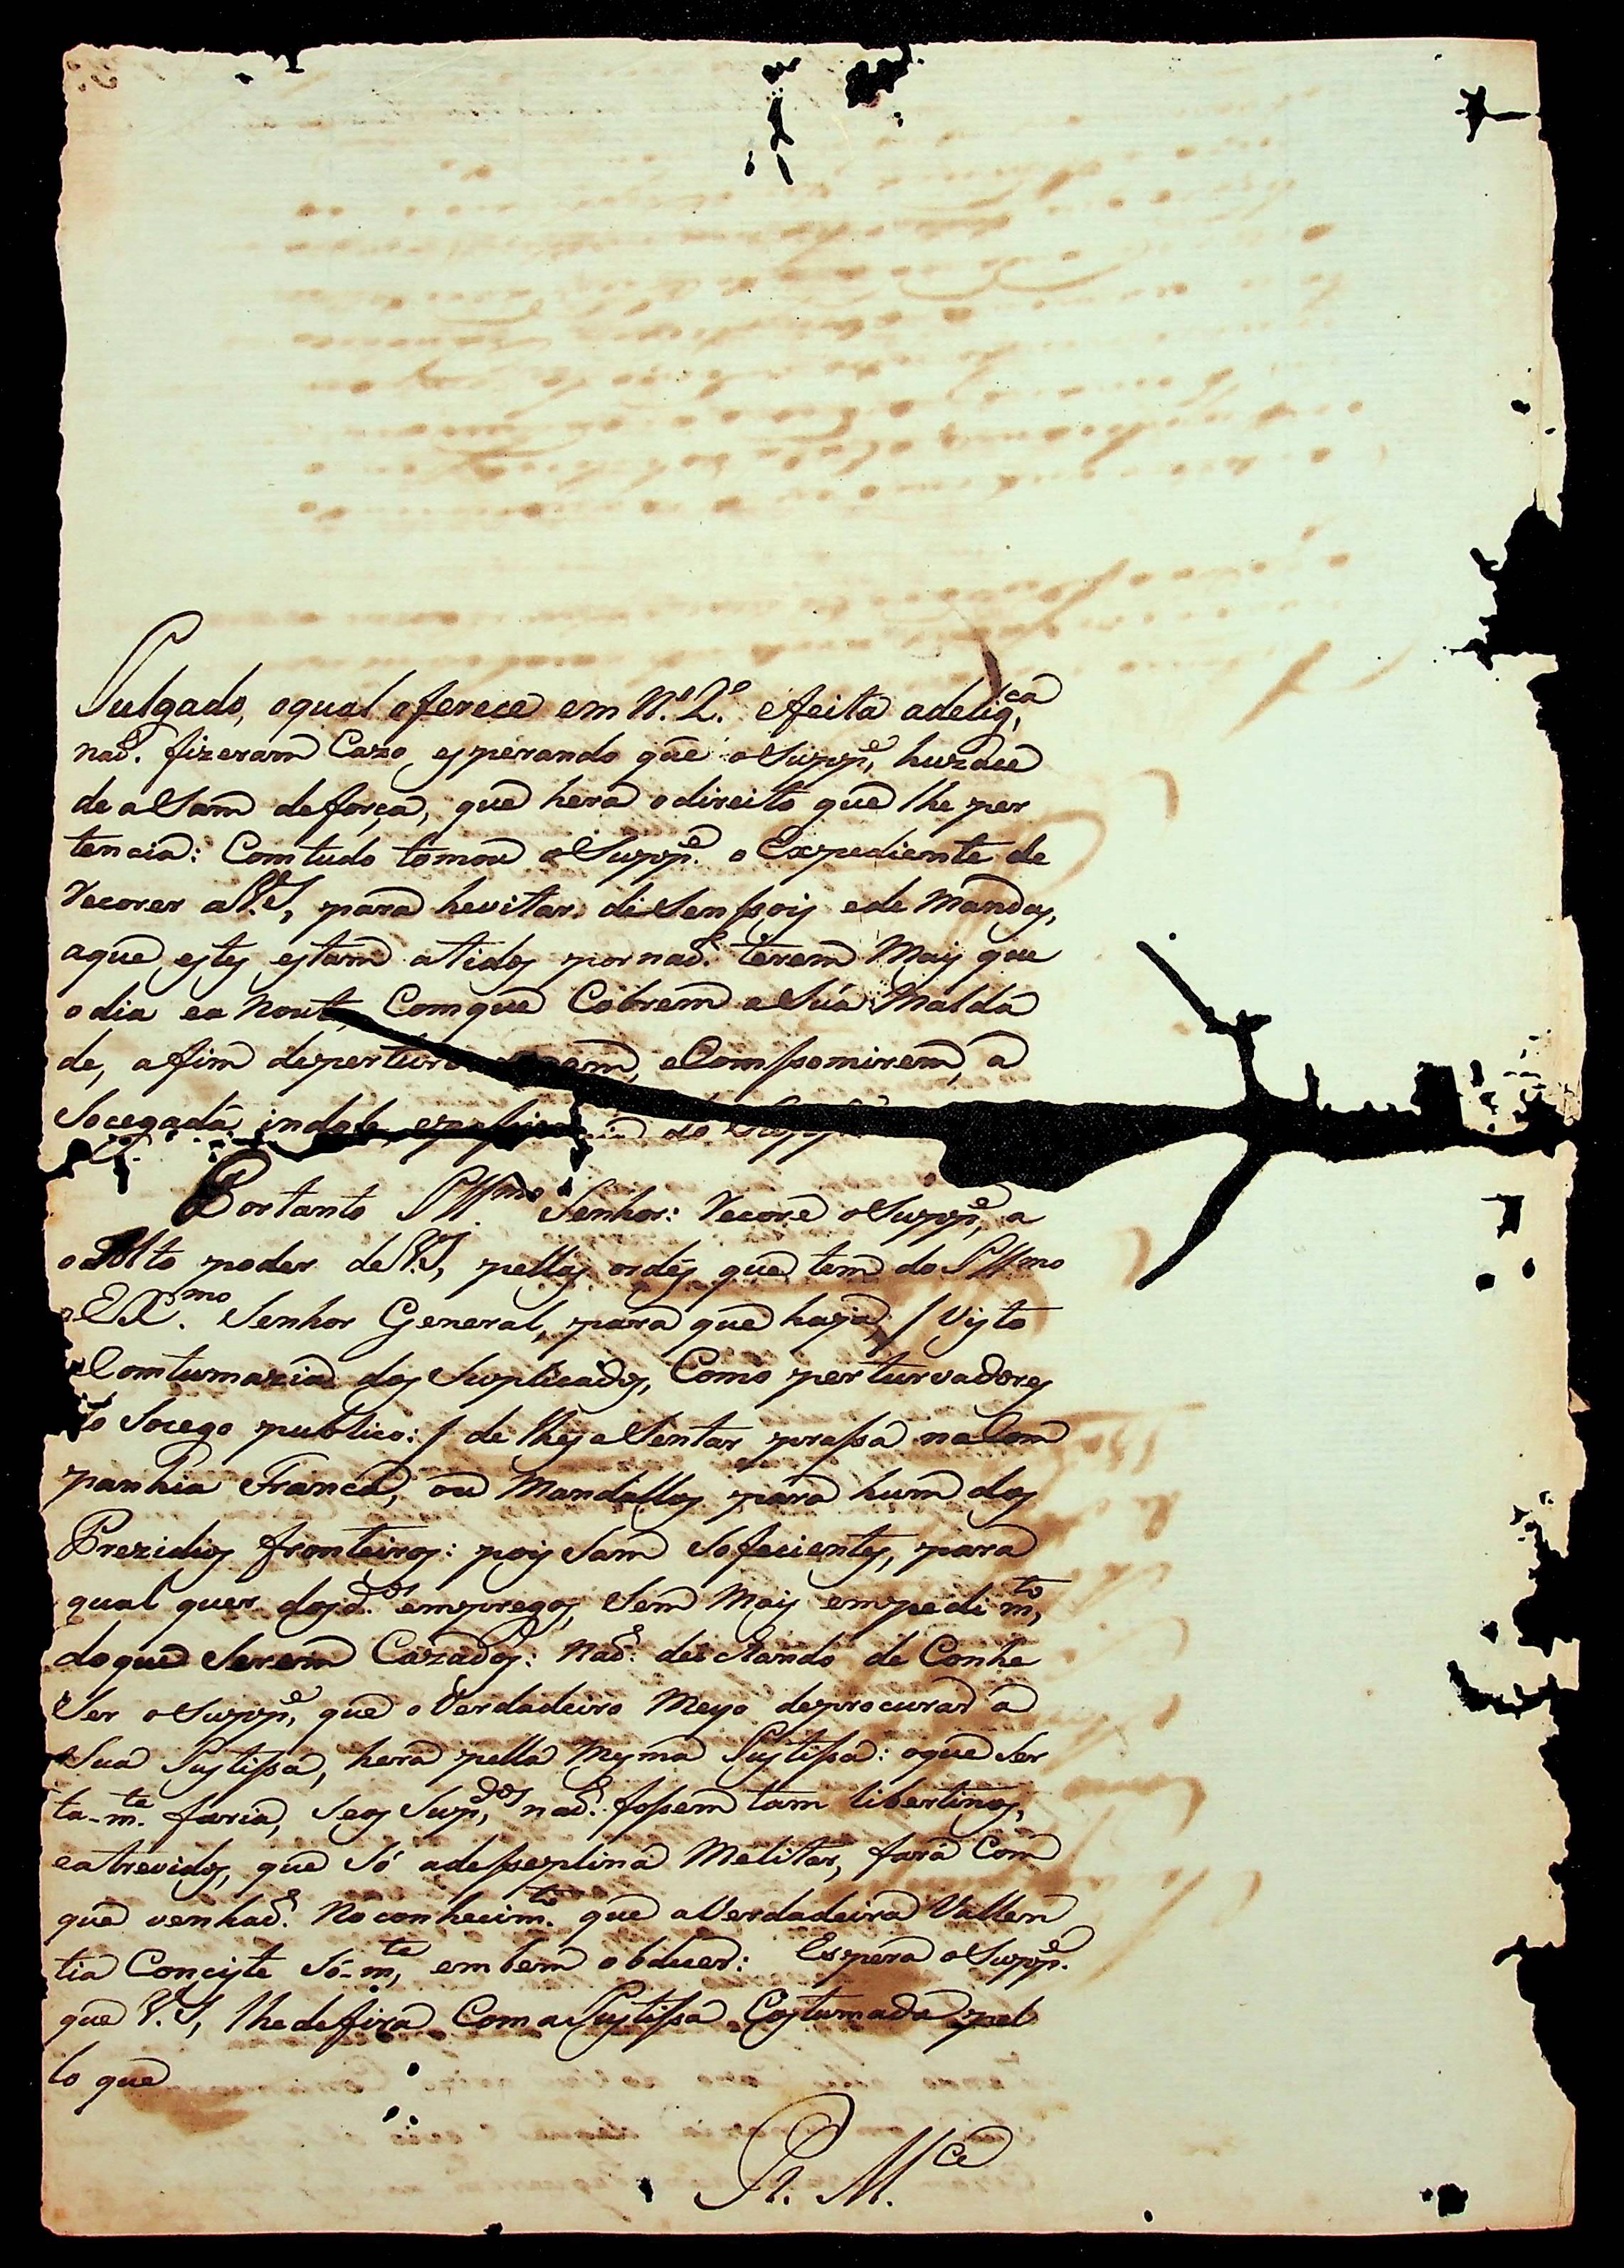 Julgado, oqual oferece em N.º 2.º efeita adelig.ca
naõ. fizeram Cazo, esperando que oSupp.e, huzace
de aSam deforça, que hera odireito que lhe per
tencia: Comtudo tomou oSupp.e o Expediente de
Recorer aV.S, para hevitar. diSenssois ede Mandas,
aque estes estam atidos pornaõ. terem Mais que
odia ea Noute, Comque Cobrem aSua Malda
de, afim deperturb em, eComssomirem, a
Socegada indole,
Portanto Ill.mo Senhor: Recore oSupp.e, a
oAlto poder deV.S, pellas ordẽs que tem do Ill.mo
eEx.mo Senhor General, para que haja, / Visto
Comtumazia dos Suplicados, Como perturvadores
do Socego publico: / de lhes aSentar prassa naCom
panhia Franca, ou Mandallos para hum dos
Prezidios fronteiros: pois Sam Soficientes, para
qual quer dosd.os empregos, Sem Mais empedim.to,
doque Serem Cazados: Naõ: deichando de Conhe
Ser oSupp.e, que oVerdadeiro Meyo deprocurar a
Sua Justissa, hera pella Mesma Justissa: oque Ser
ta-m.te faria, Seos Sup.dos, naõ. fossem tam libertinos,
eatrevidos, que Só adesseplina Melitar, fará Com
que venhaõ. No conhecim.to que aVerdadeira Vallen
tia Conciste Só-m.te, embem obduer: Espera oSupp.e
que V.S, lhedefira ComaJustissa Costumada pel
lo que
R. M.ce